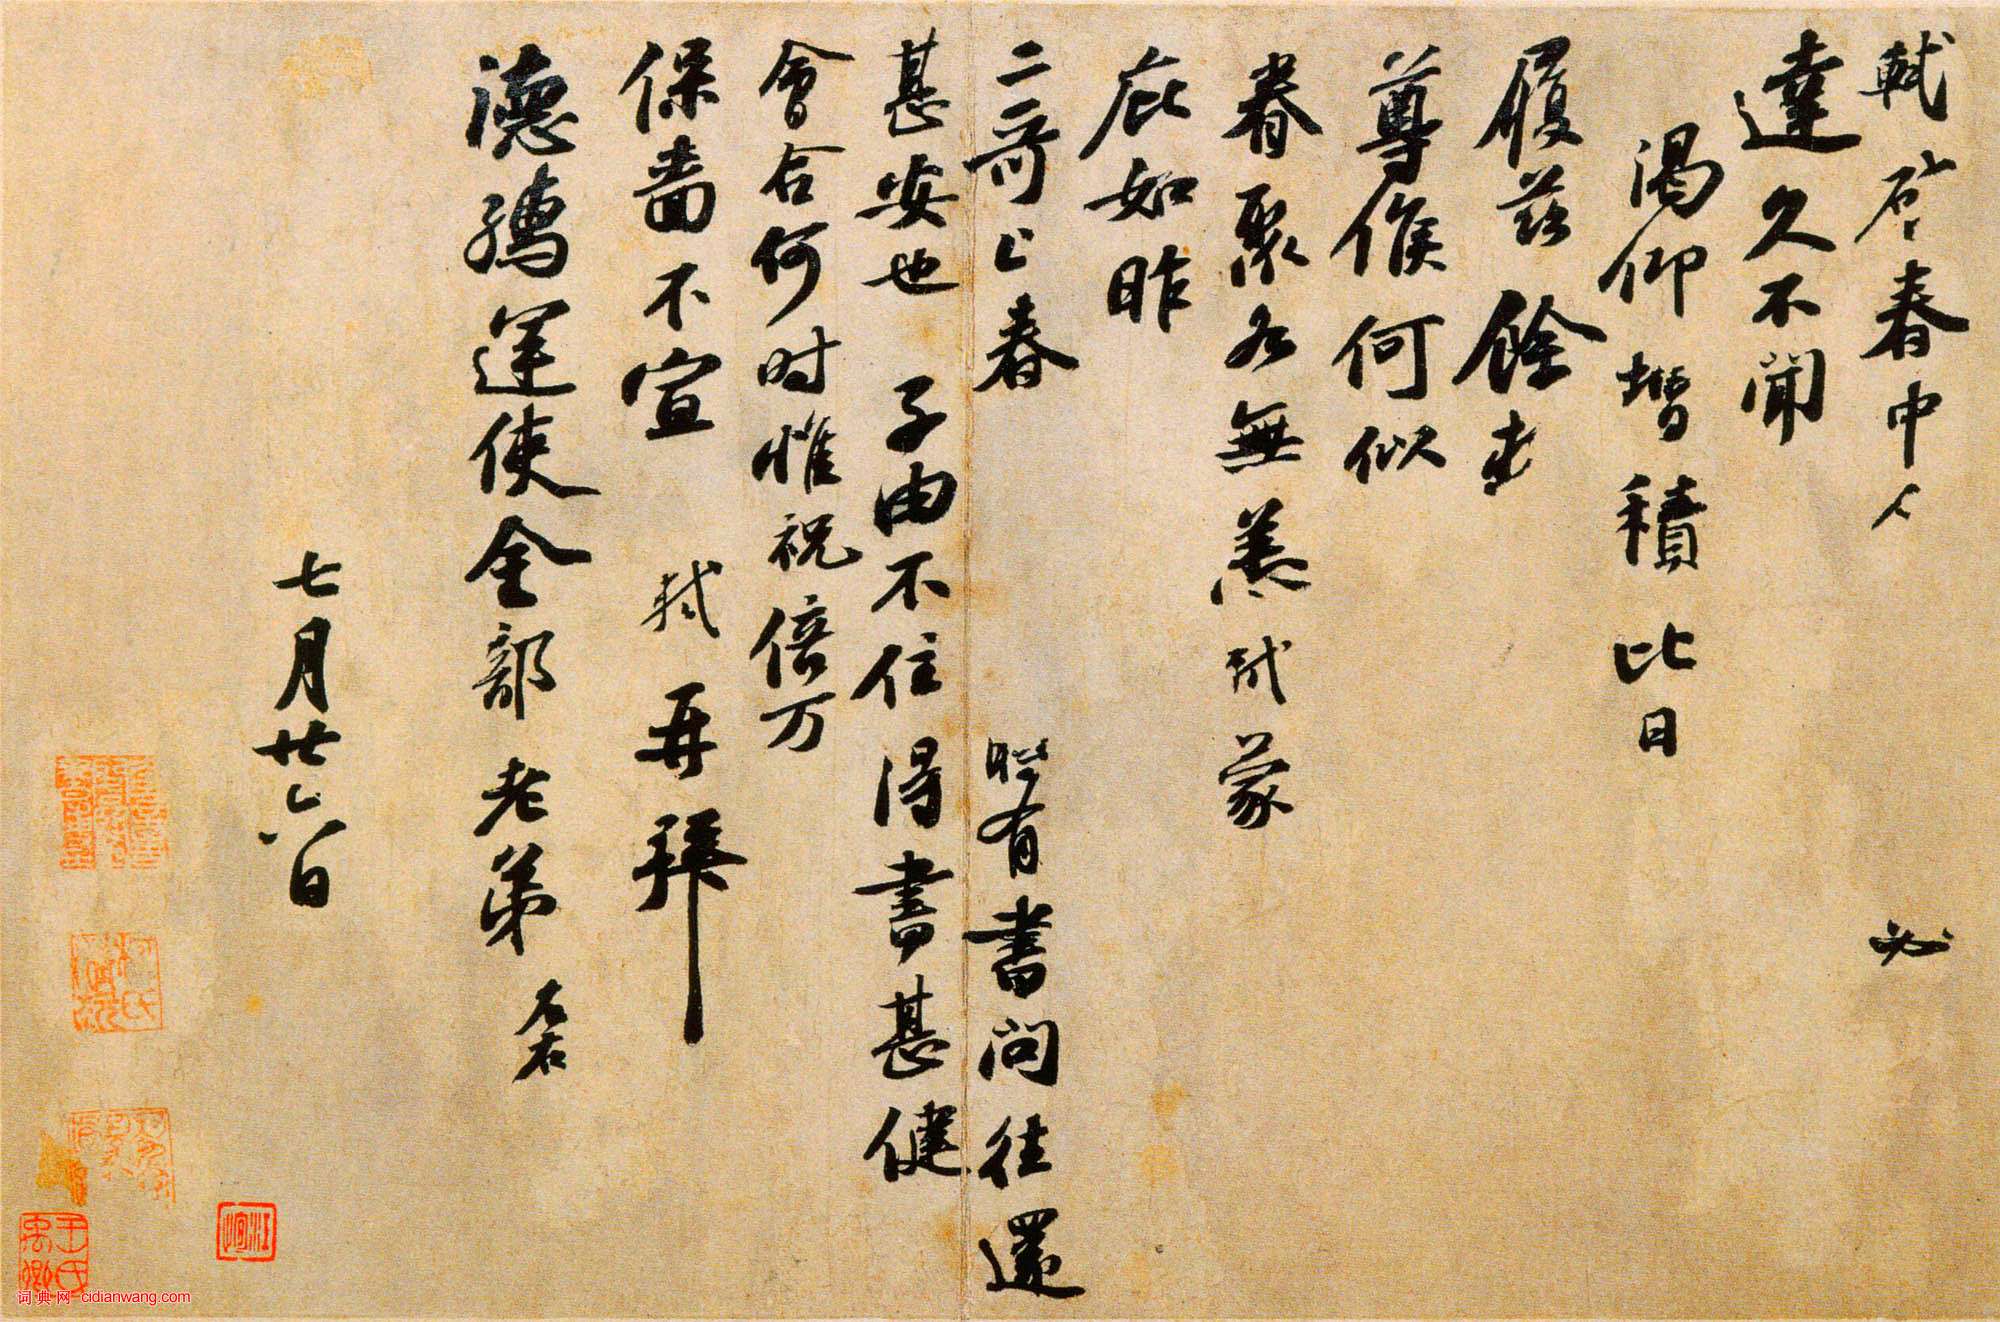 軾啓春中人必
達久不聞
渴仰增積比日
履茲餘
尊候何似
眷聚各無恙軾蒙
庇如昨
二哥上春有書問往還
甚安也子由不住得書甚健
會合何时惟祝倍万
保嗇不宣軾再拜
德孺運使金部老弟左右
七月廿六日
王氏禹卿
词典网 cidianwang.com